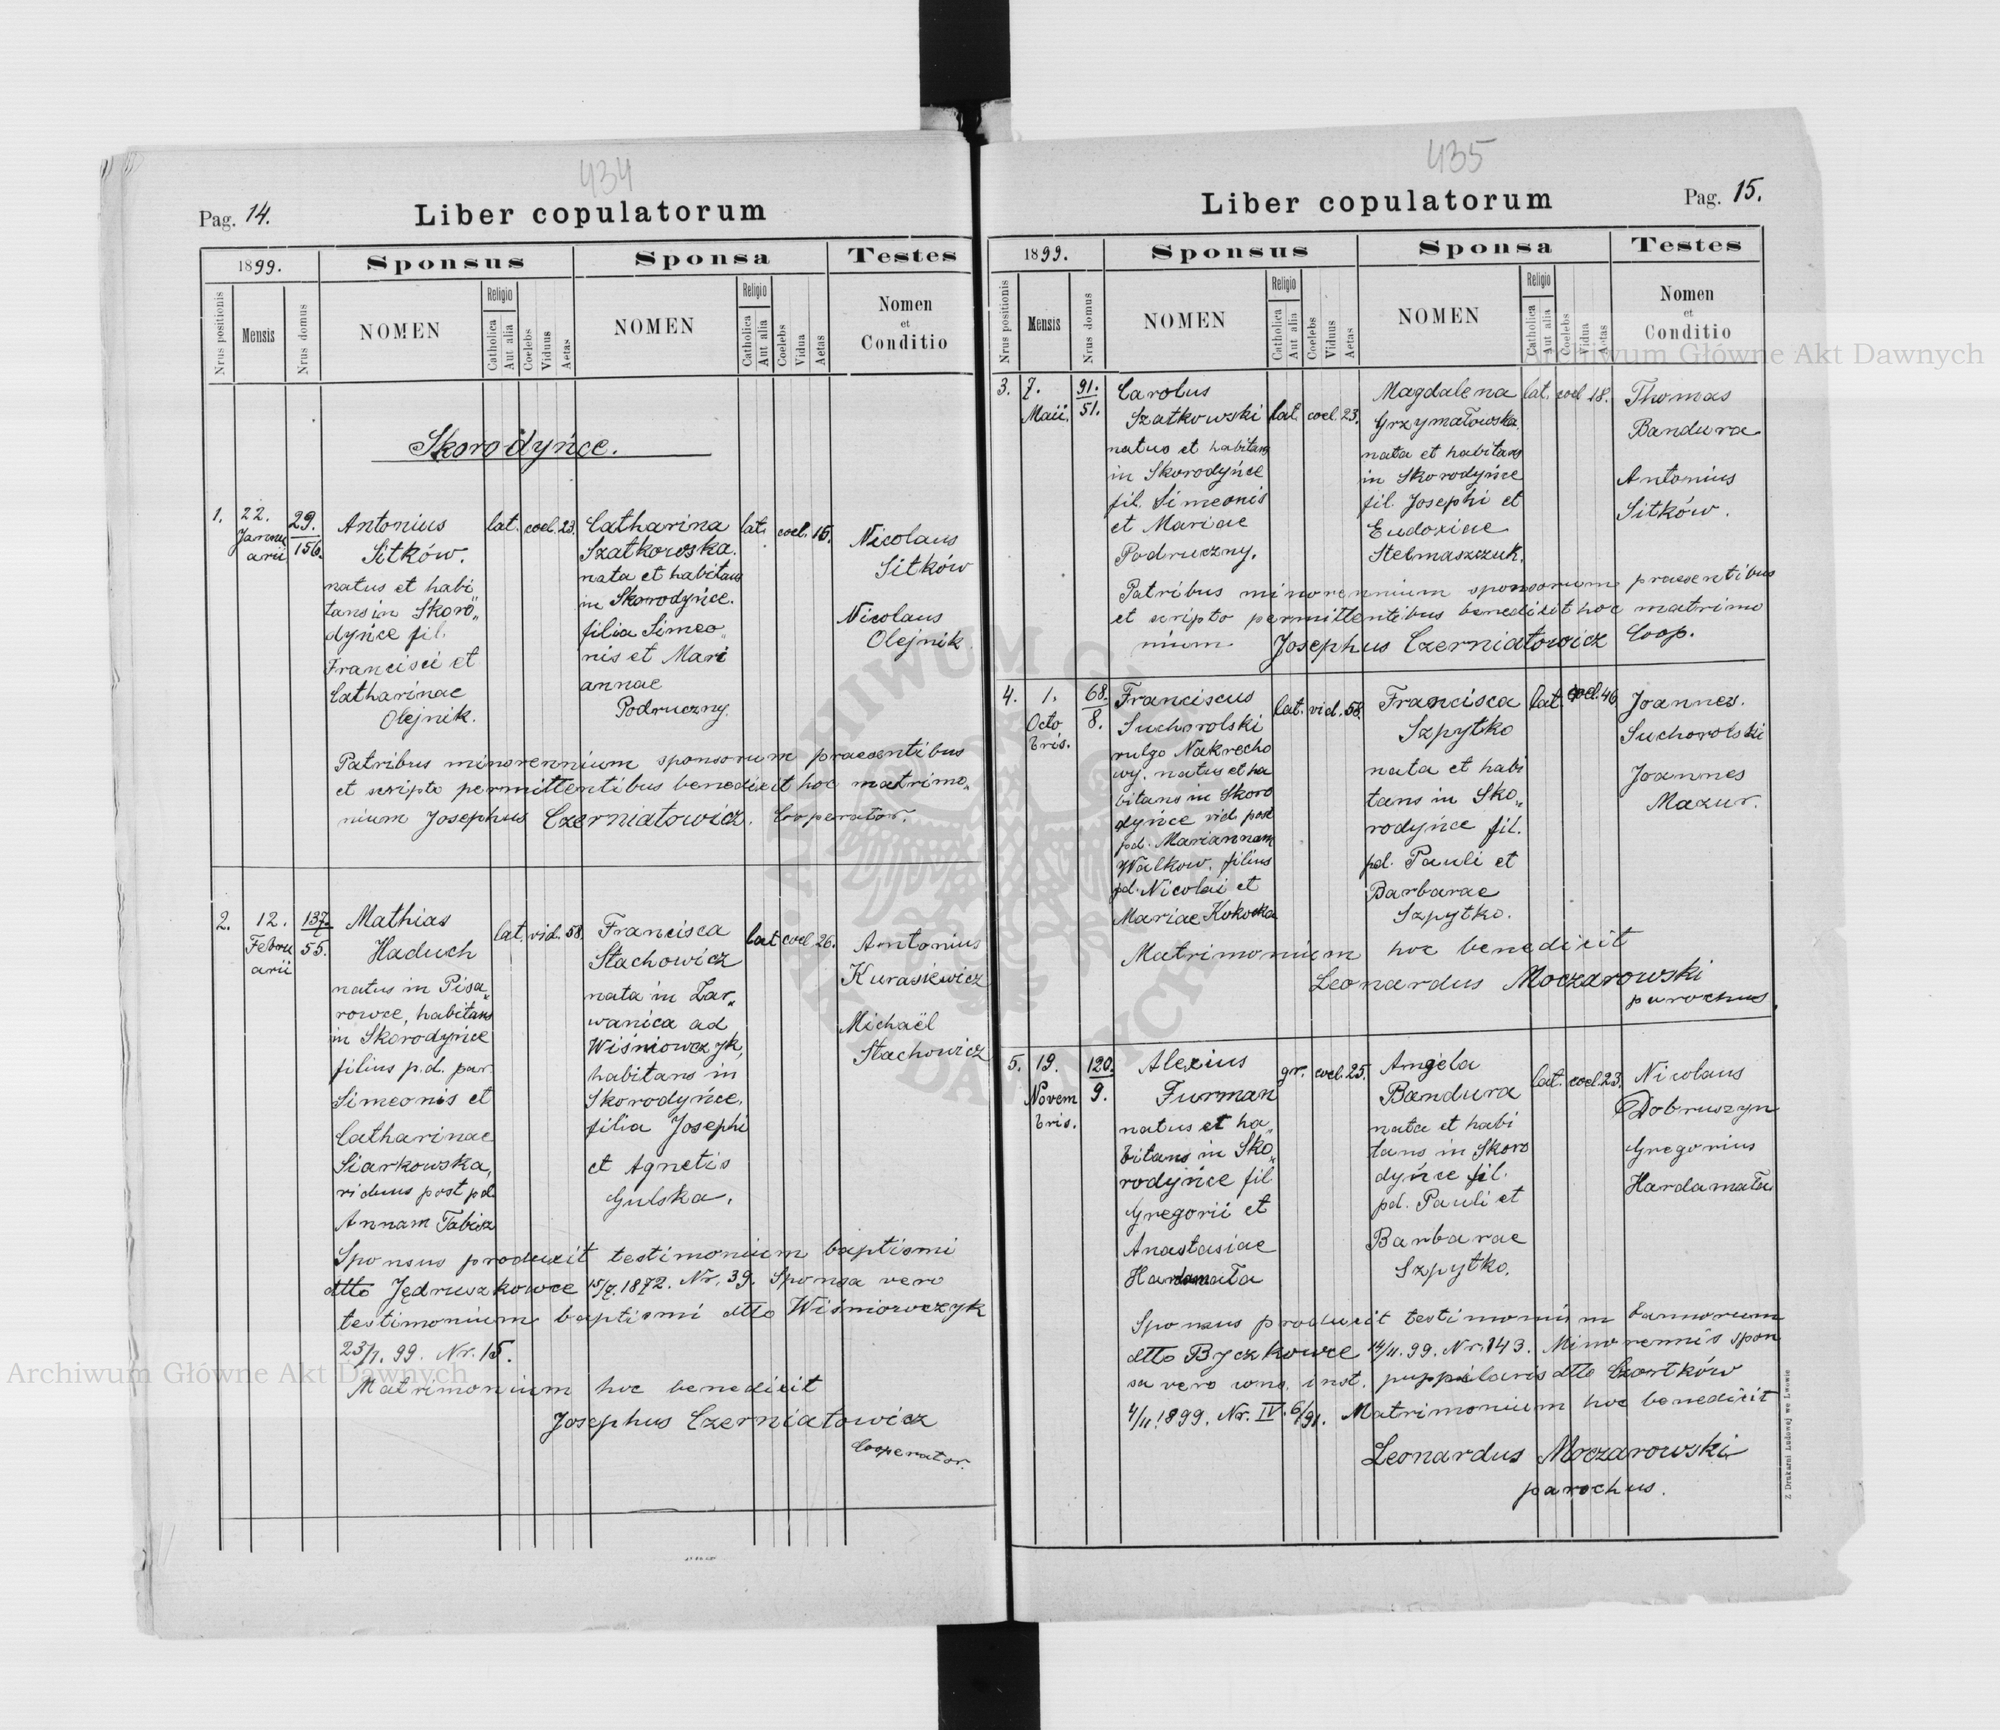 434
Pag. 14.
Liber copulatorum
1899.
Sponsus
Sponsa
Testes
Nrus positionis
Mensis
Nrus domus
NOMEN
Religio
Catholica
Aut alia
Coelebs
Viduus
Aetas
NOMEN
Religio
Catholica
Aut alia
Coelebs
Vidua
Aetas
Nomen
et
Conditio
Skorodyńce.
1.
22.
Janu
arii
29.
156.
Antonius
Sitków.
natus et habi
tans in Skoro„
dyńce fil.
Francisci et
Catharinae
Olejnik.
lat.
coel.
23.
Catharina
Szatkowska.
nata et habitans
in Skorodyńce.
filia Simeo„
nis et Mari
annae
Podruczny.
lat.
coel.
16.
Nicolaus
Sitków
Nicolaus
Olejnik.
Patribus minorennium sponsorum praesentibus
et scripto permittentibus benedixit hoc matrimo„
nium Josephus Czerniatowicz. Cooperator.
2.
12.
Febru
arii
137
55.
Mathias
Haduch
natus in Pisa„
rowce, habitans
in Skorodyńce
filius p.d. par.
Simeonis et
Catharinae
Siarkowska,
viduus post pd.
Annam Tabisz
lat.
vid.
58.
Francisca
Stachowicz
nata in Zar„
wanica ad
Wiśniowczyk,
habitans in
Skorodyńce,
filia Josephi
et Agnetis
Gulska.
lat
coel.
26.
Antonius
Kurasiewicz
Michaël
Stachowicz
Sponsus produxit testimonium baptismi
dtto Jędruszkowce 15/7. 1872. Nr. 39. Sponsa vero
testimonium baptismi dtto Wiśniowczyk
23/1. 99. Nr. 15.
Matrimonium hoc benedixit
Josephus Czerniatowicz
Cooperator.
435
Liber copulatorum
Pag. 15.
1899.
Sponsus
Sponsa
Testes
Nrus positionis
Mensis
Nrus domus
NOMEN
Religio
Catholica
Aut alia
Coelebs
Viduus
Aetas
NOMEN
Religio
Catholica
Aut alia
Coelebs
Vidua
Aetas
Nomen
et
Conditio
3.
7.
Maii.
91.
51.
Carolus
Szatkowski
natus et habitans
in Skorodyńce
fil. Simeonis
et Mariae
Podruczny.
lat.
coel.
23.
Magdalena
Grzymałowska.
nata et habitans
in Skorodyńce
fil. Josephi et
Eudoxiae
Stelmaszczuk.
lat.
coel
18.
Thomas
Bandura
Antonius
Sitków.
Patribus minorennium sponsorum praesentibus
et scripto permittentibus benedixit hoc matrimo
nium Josephus Czerniatowicz Coop.
4.
1.
Octo
bris.
68.
8.
Franciscus
Suchorolski
vulgo Nakrecho
wy. natus et ha
bitans in Skoro
dyńce vid. post
pd. Mariannam
Walkow. filius
pd. Nicolai et
Mariae Kokoska
lat.
vid.
58.
Francisca
Szpytko
nata et habi
tans in Sko„
rodyńce fil.
pd. Pauli et
Barbarae
Szpytko.
lat.
coel.
46
Joannes.
Suchorolski
Joannes
Mazur.
Matrimonium hoc benedixit
Leonardus Moczarowski
parochus.
5.
19.
Novem
bris.
120.
9.
Alexius
Furman
natus et ha„
bitans in Sko„
rodyńce fil
Gregorii et
Anastasiae
Hardamała
gr.
coel.
25.
Angela
Bandura
nata et habi
tans in Skoro
dyńce fil.
pd. Pauli et
Barbarae
Szpytko.
lat.
coel.
23.
Nicolaus
Dobruszyn
Gregorius
Hardamała.
Sponsus produxit testimonium bannorum
dtto Byczkowce 14/11. 99. Nr. 143. Minorennis spon
sa vero cons. inst. pupilaris dtto Czortków
4/11. 1899. Nr. IV. 6/91. Matrimonium hoc benedixit
Leonardus Moczarowski
parochus.
Z Drukarni Ludowej we Lwowie
Archiwum Główne Akt Dawnych
Archiwum Główne Akt Dawnych
ARCHIWUM GŁÓWNE AKT DAWNYCH